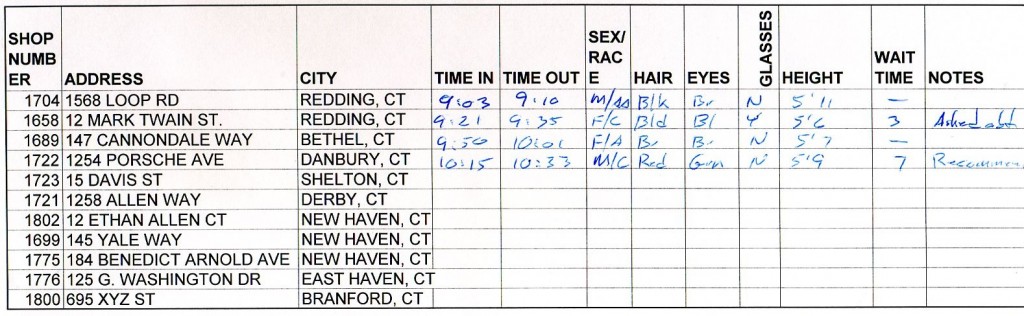 SHOP NUMB ER ADDRESS CITY TIME IN TIME OUT SEX/ RAC E HAIR EYES GLASSES HEIGHT WAIT TIME NOTES
1704 1568 LOOP RD REDDING, CT 9:03 9:10 Blk Br N 5'11 —
1658 12 MARK TWAIN ST. REDDING, CT 9:21 9:35 F/C Bld Bl Y 5'6 3 Asked abt
1689 147 CANNONDALE WAY BETHEL, CT 9:50 10:01 F/A Br Br N 5'7 —
1722 1254 PORSCHE AVE DANBURY, CT 10:15 10:33 M/C Red Grn N 5'9 7
1723 15 DAVIS ST SHELTON, CT
1721 1258 ALLEN WAY DERBY, CT
1802 12 ETHAN ALLEN CT NEW HAVEN, CT
1699 145 YALE WAY NEW HAVEN, CT
1775 184 BENEDICT ARNOLD AVE NEW HAVEN, CT
1776 125 G. WASHINGTON DR EAST HAVEN, CT
1800 695 XYZ ST BRANFORD, CT